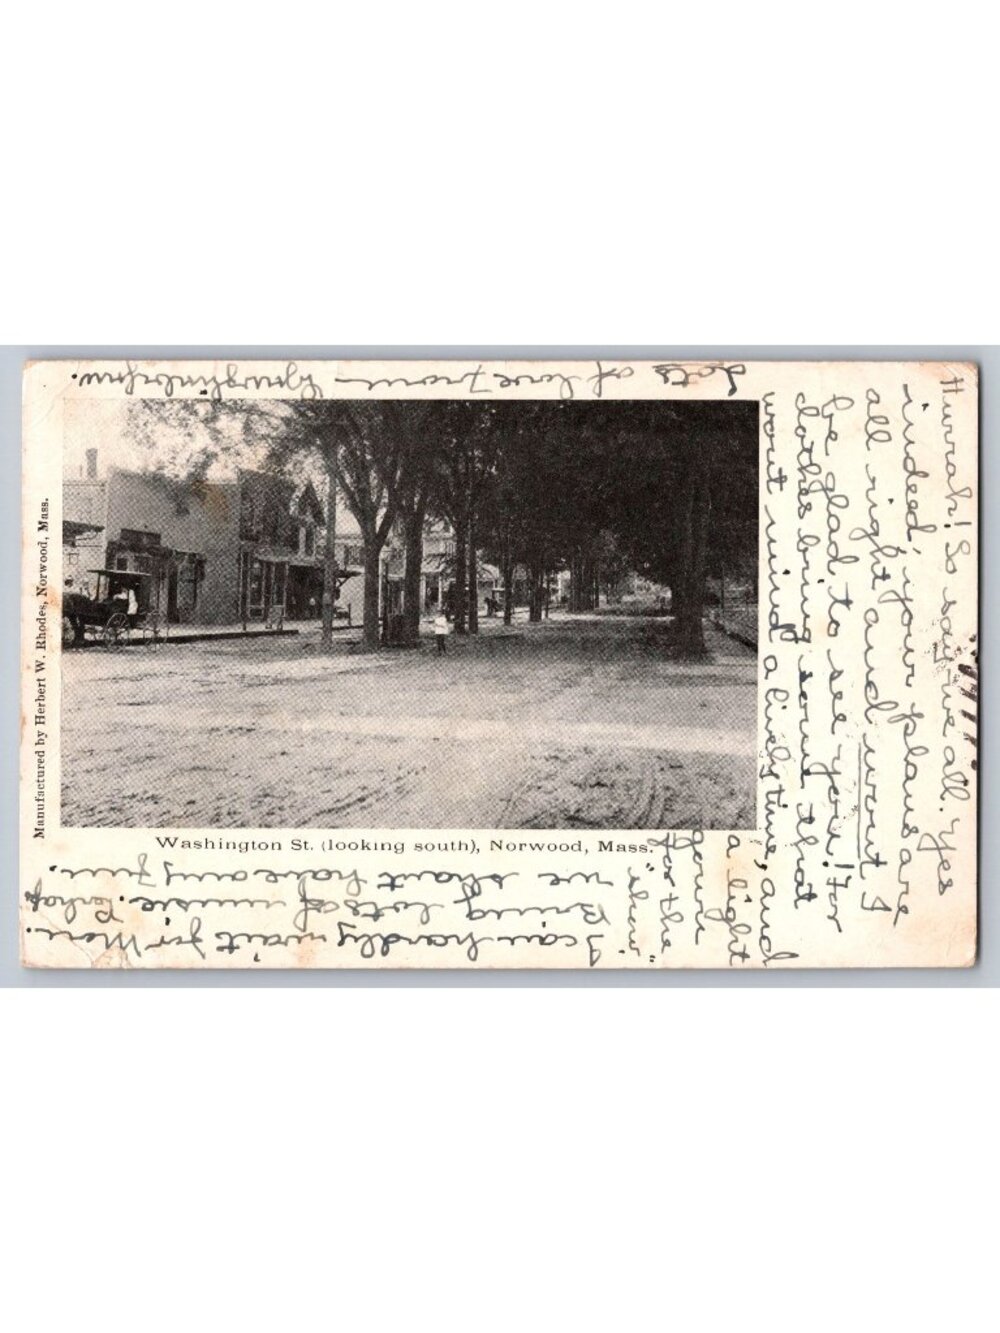 Manufactured by Herbert W. Rhodes, Norwood, Mass.
Washington St. (looking south), Norwood, Mass.
Hurrah! So say we all. Yes
indeed, your plans are
all right and wont I
be glad to see you! For
clothes bring some that
wont mind a lively time, and
a light
gown
for the
"show"
I can hardly wait for Mon.
Bring lots of music. Perhaps
we shant have any fun.
Lots of love from —